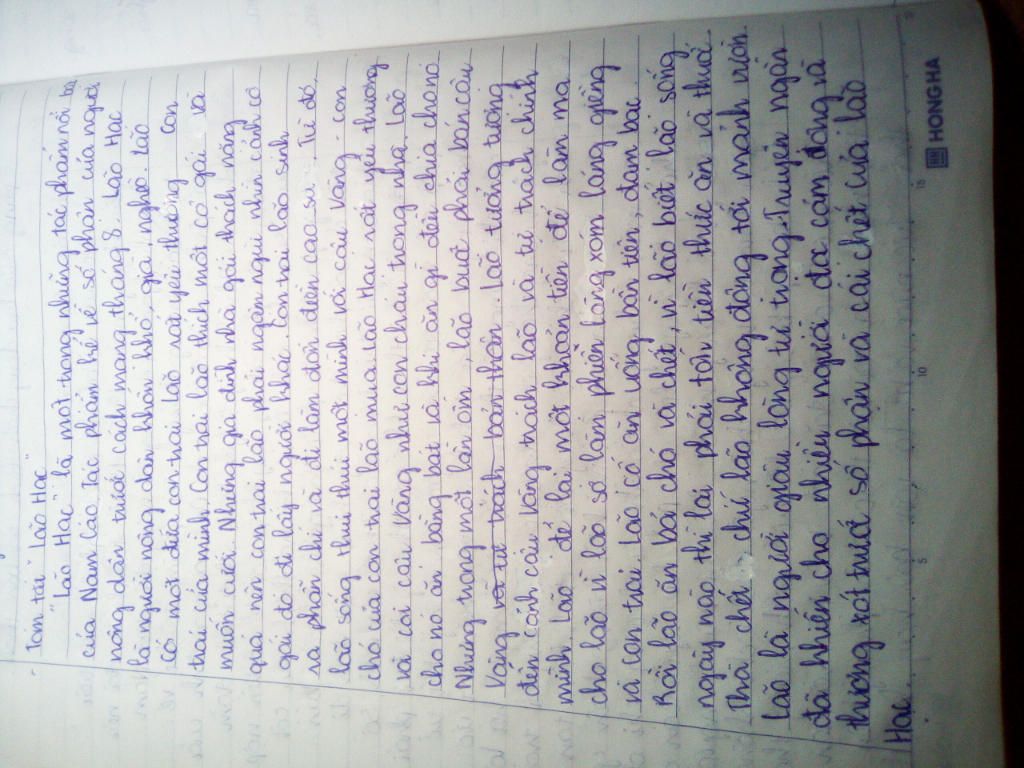 - Tóm tắt "Lão Hạc"
"Lão Hạc" là một trong những tác phẩm nổi bậ
của Nam Cao, tác phẩm kể về số phận của người
nông dân trước cách mạng tháng 8. Lão Hạc
là người nông dân khốn khổ, già, nghèo. Lão
có một đứa con trai, lão rất yêu thương con
trai của mình. Con trai lão thích một cô gái và
muốn cưới. Nhưng gia đình nhà gái thách nặng
quá nên con trai lão phải ngậm ngùi nhìn cảnh cô
gái đó đi lấy người khác. Con trai lão sinh
ra phẫn chí và đi làm đồn điền cao su. Từ đó,
lão sống thui thủi một mình với cậu Vàng - con
chó của con trai lão mua. Lão Hạc rất yêu thương
và coi cậu Vàng như con cháu trong nhà. Lão
cho nó ăn bằng bát và khi ăn gì đều chia cho nó
Nhưng trong một lần ốm, lão buộc phải bán cậu
Vàng và tự trách bản thân. Lão tưởng tượng
đến cảnh cậu Vàng trách lão và tự trách chính
mình. Lão để lại một khoản tiền để làm ma
cho lão vì lão sợ làm phiền làng xóm láng giềng
và con trai lão có ăn uống bán tiền, đam bac
Rồi lão ăn bả chó và chết, vì lão biết lão sống
ngày nào thì lại phải tốn tiền thức ăn và thuốc.
Thà chết chứ lão không động tới mảnh vườn.
Lão là người giàu lòng tự trọng. Truyện ngắn
đã khiến cho nhiều người đọc cảm động và
thương xót trước số phận và cái chết của lão
Hạc
HONG HA
5
10
15